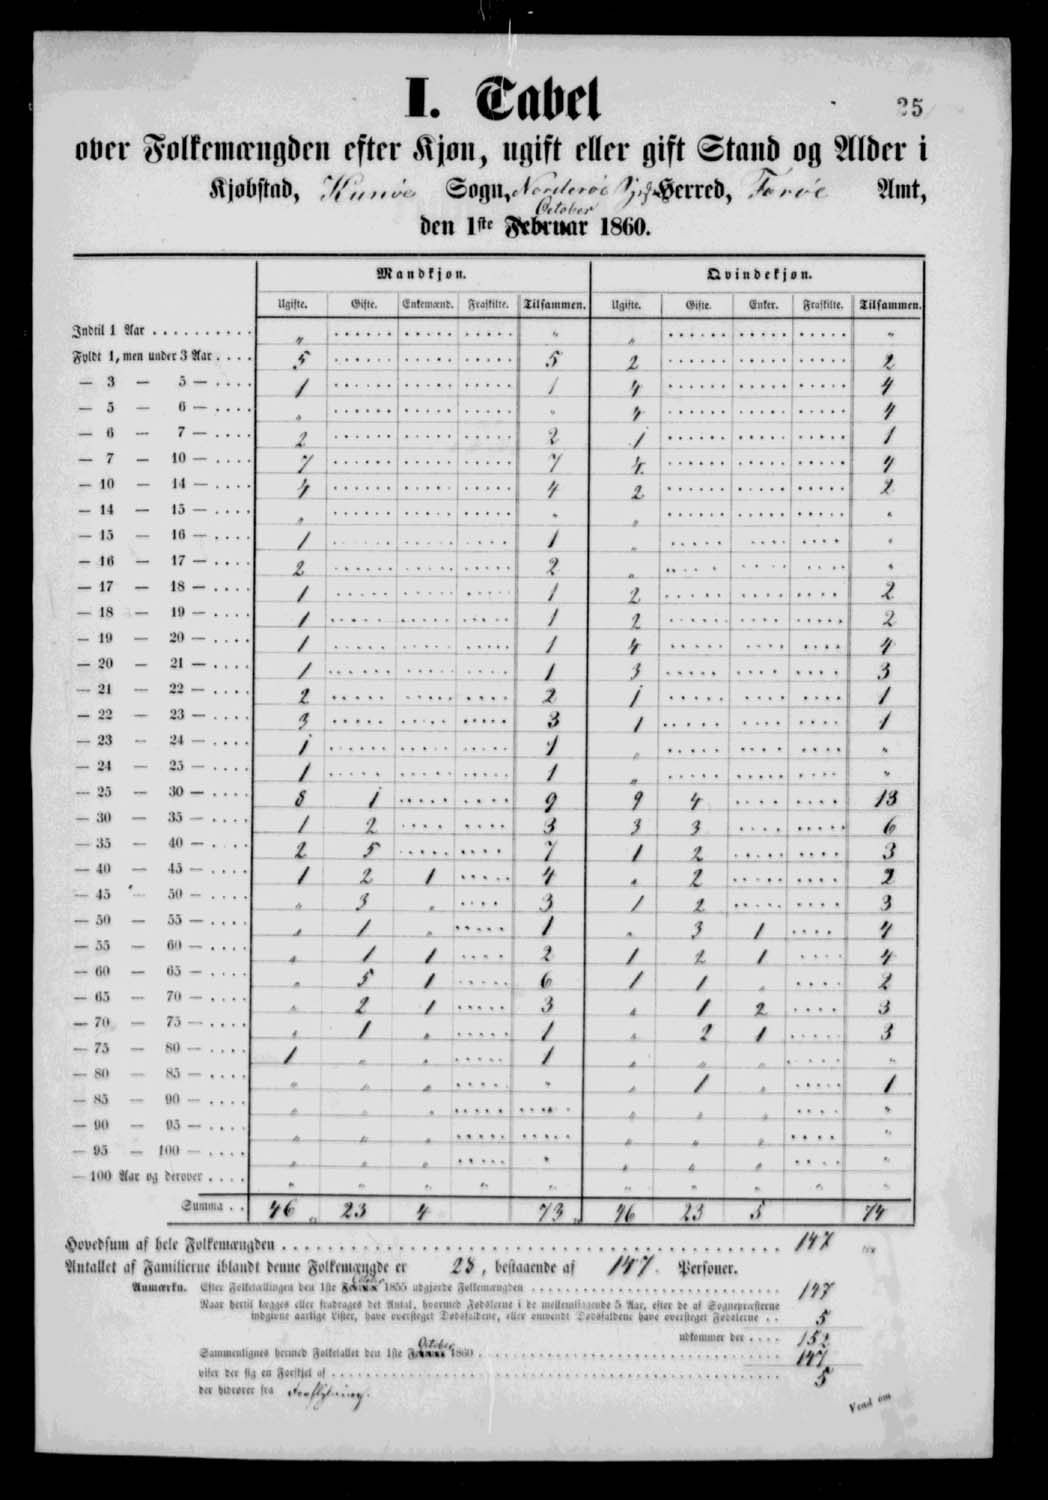 I. Tabel
25
over Folkemængden efter Kjøn, ugift eller gift Stand og Alder i
Kjøbstad, Kunøe Sogn, Norderøe Herred, Færøe Amt,
October
den 1ste Februar 1860.
Mandkjøn. Qvindekjøn.
Ugifte. Gifte. Enkemænd. Fraskilte. Tilsammen. Ugifte. Gifte. Enker. Fraskilte. Tilsammen.
Indtil 1 Aar . . . . . . . . . . „ „ „ „
Fyldt 1, men under 3 Aar . . . . 5 5 2 2
— 3 — 5 — . . . . 1 1 4 4
— 5 — 6 — . . . . „ „ 4 4
— 6 — 7 — . . . . 2 2 1 1
— 7 — 10 — . . . . 7 7 4 4
— 10 — 14 — . . . . 4 4 2 2
— 14 — 15 — . . . . „ „ „ „
— 15 — 16 — . . . . 1 1 „ „
— 16 — 17 — . . . . 2 2 „ „
— 17 — 18 — . . . . 1 1 2 2
— 18 — 19 — . . . . 1 1 2 2
— 19 — 20 — . . . . 1 1 4 4
— 20 — 21 — . . . . 1 1 3 3
— 21 — 22 — . . . . 2 2 1 1
— 22 — 23 — . . . . 3 3 1 1
— 23 — 24 — . . . . 1 1 „ „
— 24 — 25 — . . . . 1 1 „ „
— 25 — 30 — . . . . 8 1 9 9 4 13
— 30 — 35 — . . . . 1 2 3 3 3 6
— 35 — 40 — . . . . 2 5 7 1 2 3
— 40 — 45 — . . . . 1 2 1 4 „ 2 2
— 45 — 50 — . . . . „ 3 „ 3 1 2 3
— 50 — 55 — . . . . „ 1 „ 1 „ 3 1 4
— 55 — 60 — . . . . „ 1 1 2 1 2 1 4
— 60 — 65 — . . . . „ 5 1 6 1 1 „ 2
— 65 — 70 — . . . . „ 2 1 3 „ 1 2 3
— 70 — 75 — . . . . „ 1 „ 1 „ 2 1 3
— 75 — 80 — . . . . 1 „ „ 1 „ „ „ „
— 80 — 85 — . . . . „ „ „ „ „ 1 „ 1
— 85 — 90 — . . . . „ „ „ „ „ „ „
— 90 — 95 — . . . . „ „ „ „ „ „ „
— 95 — 100 — . . . . „ „ „ „ „ „ „ „
— 100 Aar og derover . . . . „ „ „ „ „ „ „ „ „ „
Summa . . 46 23 4 73 46 23 5 74
Hovedsum af hele Folkemængden . . . . 147
Antallet af Familierne iblandt denne Folkemængde er 23, bestaaende af 147. Personer.
October
Anmærkn. Efter Folketællingen den 1ste Februar 1855 udgjorde Folkemængden . . . . 147
Naar hertil lægges eller fradrages det Antal, hvormed Fødslerne i de mellemliggende 5 Aar, efter de af Sognepræsterne
indgivne aarlige Lister, have oversteget Dødsfaldene, eller omvendt Dødsfaldene have oversteget Fødslerne . . 5
udkommer der . . . . 152
October
Sammenlignes hermed Folketallet den 1ste Februar 1860 . . . . 147
viser der sig en Forskjel af . . . . 5
der hidrører fra Fraflytning.
Vend om